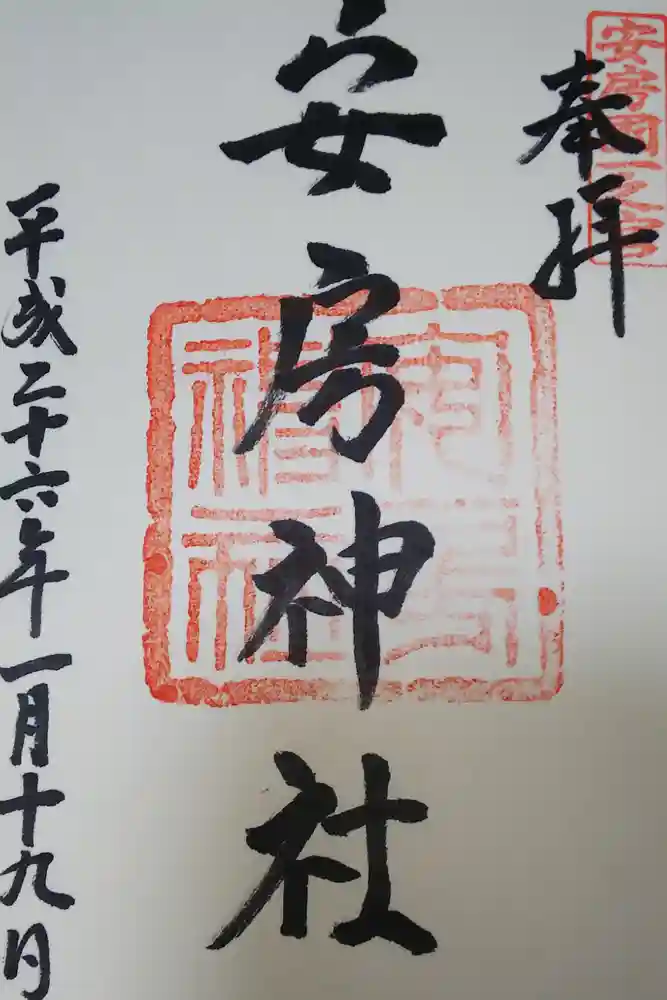 奉拝
安房国一之宮
安房神社
平成二十六年一月十九日